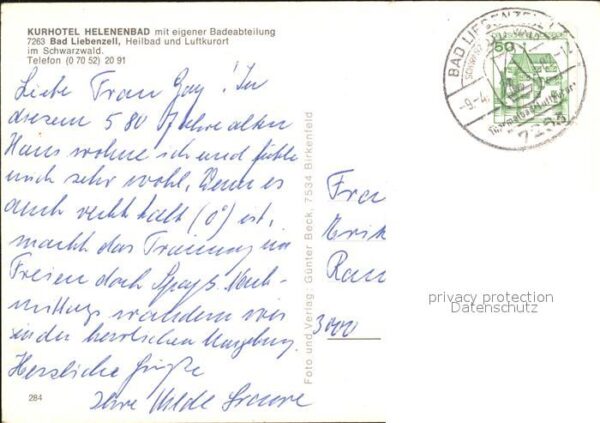 KURHOTEL HELENENBAD mit eigener Badeabteilung
7263 Bad Liebenzell, Heilbad und Luftkurort
im Schwarzwald.
Telefon (0 70 52) 20 91
Liebe Frau Gay! In
diesem 580 Jahre alten
Haus wohne ich und fühle
mich sehr wohl. Wenn es
auch recht kalt (0°) ist,
macht das Training im
Freien doch Spaß. Nach-
mittags wandern wir
in der herrlichen Umgebung.
Herzliche Grüße
Ihre Hilde
284
Foto und Verlag: Günter Beck, 7534 Birkenfeld
BAD LIEBENZELL
50
-9.-4.
7263
Frau
Rau
3000
privacy protection
Datenschutz